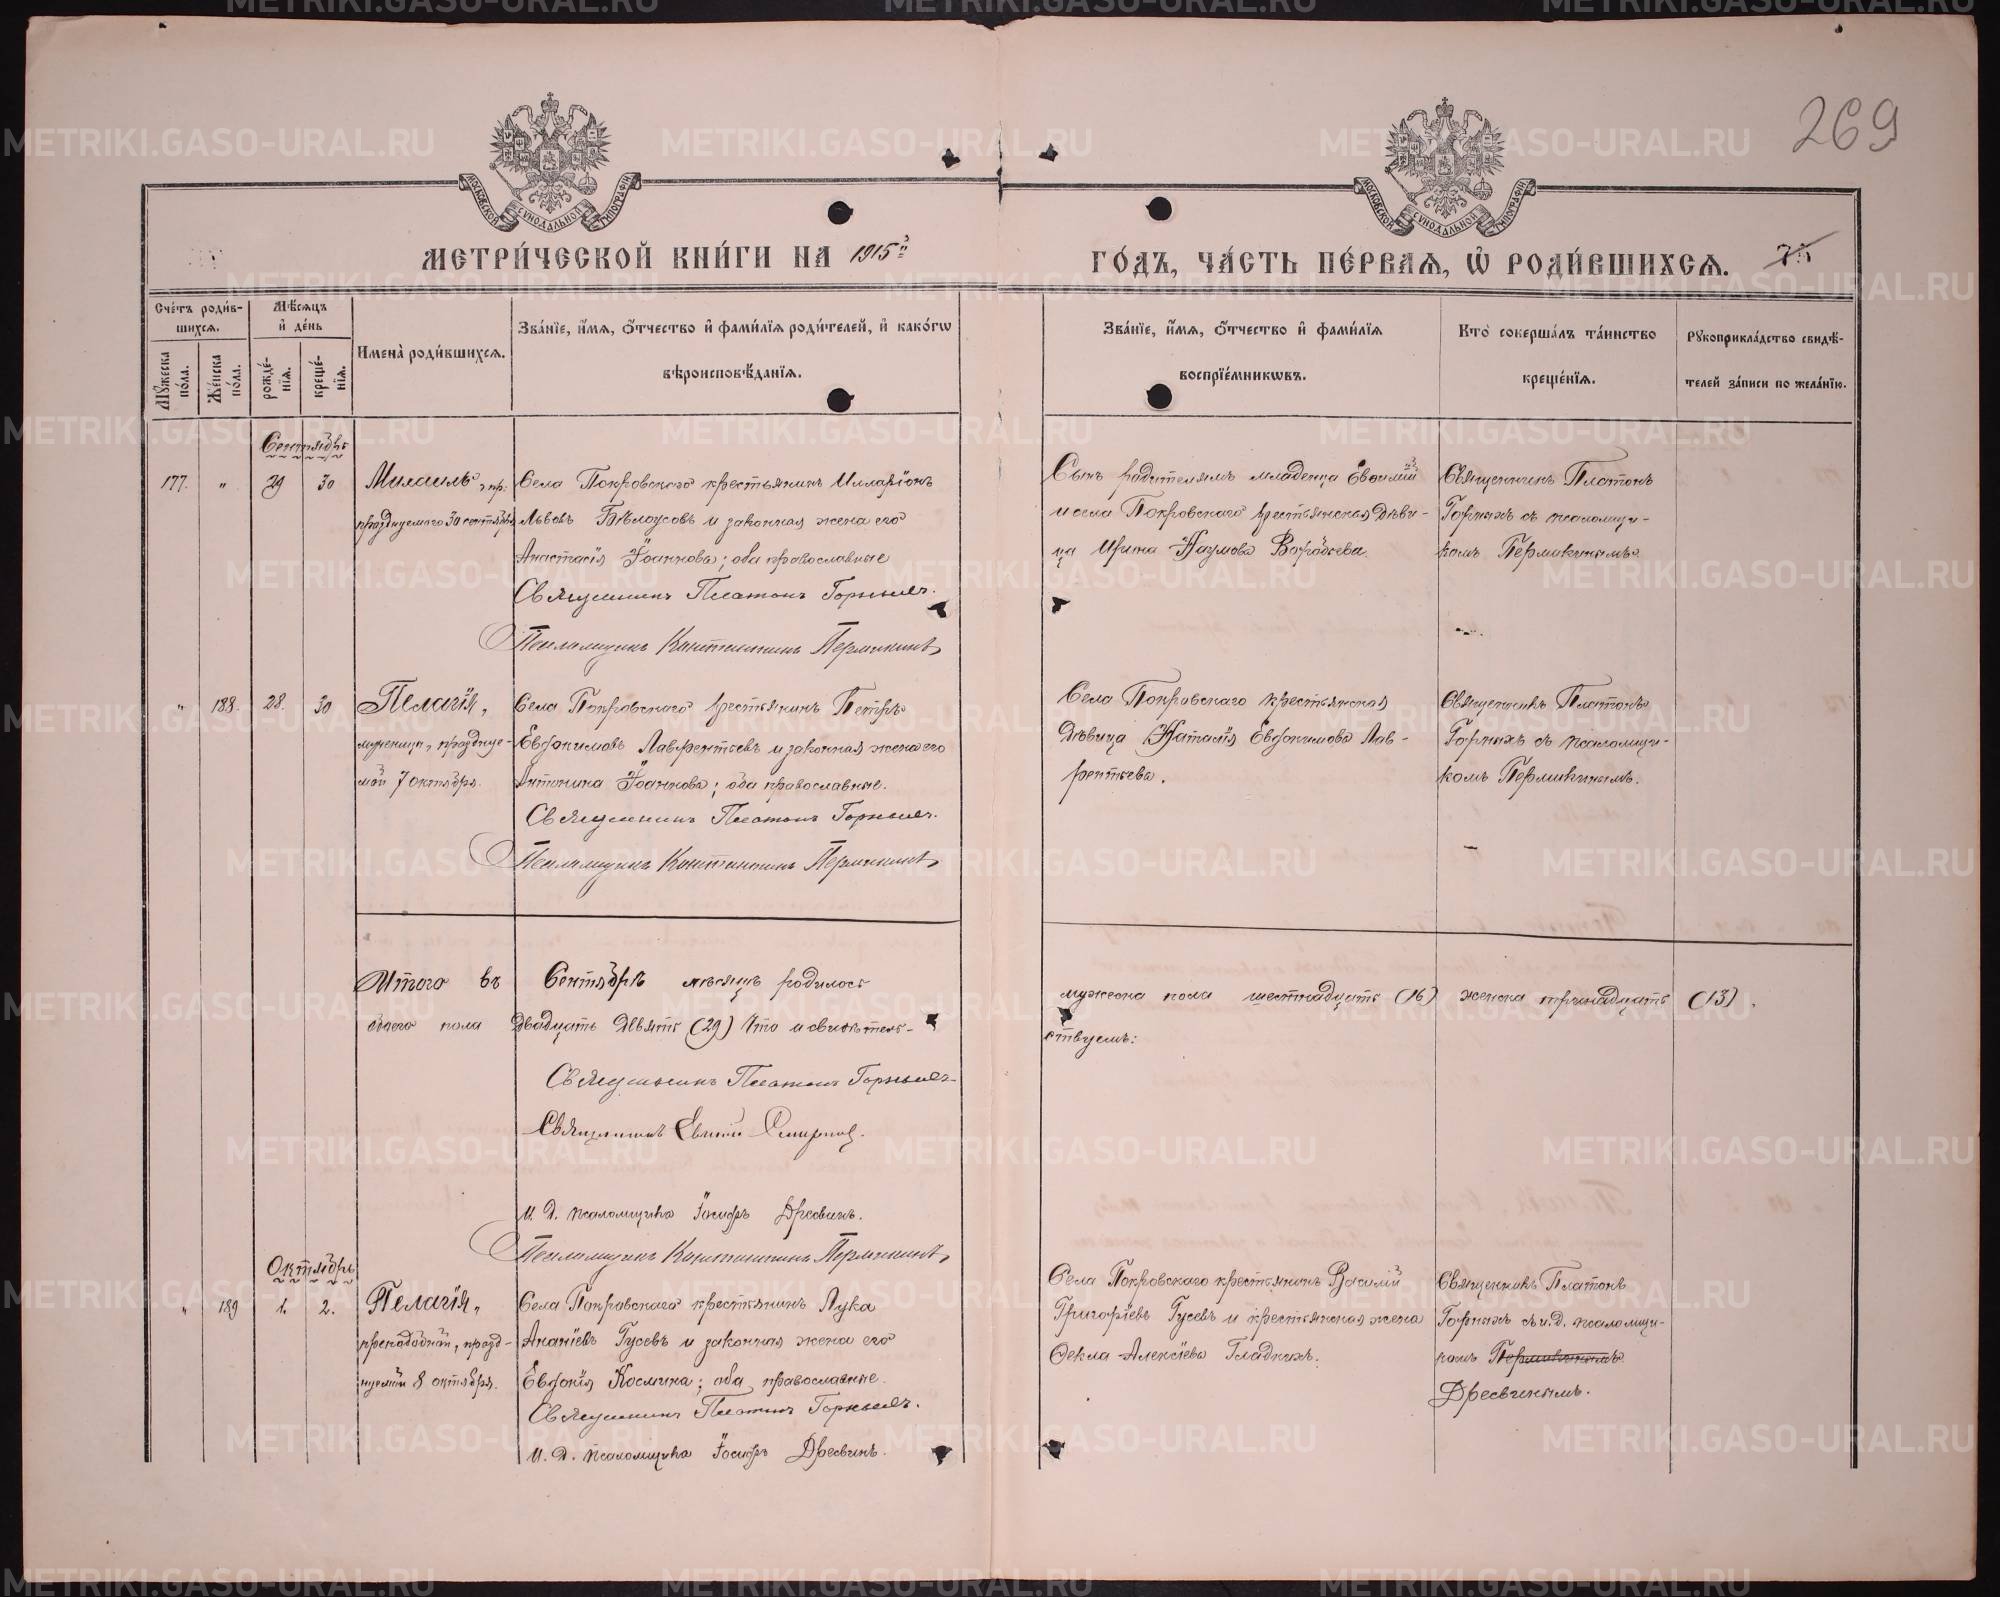 269
МОСКОВСКОЙ СѴНОДАЛЬНОЙ ТИПОГРАФІИ
МОСКОВСКОЙ СѴНОДАЛЬНОЙ ТИПОГРАФІИ
МЕТРИ́ЧЕСКОЙ КНИ́ГИ НА 1915й
ГО́ДЪ, ЧА́СТЬ ПЕ́РВАЯ, Ѡ҆ РОДИ́ВШИХСЯ.
75
Сче́тъ роди́в-
шихся.
Мꙋ́жеска по́ла.
Же́нска по́ла.
Мѣ́сяцъ
и҆ де́нь
рожде́-
нїя.
креще́-
нїя.
И҆мена̀ роди́вшихся.
Зва́нїе, и҆́мя, ѻ҆́тчество и҆ фами́лїя роди́телей, и҆ како́гѡ
вѣроисповѣ́данїя.
Зва́нїе, и҆́мя, ѻ҆́тчество и҆ фами́лїя
воспрїе́мникѡвъ.
Кто̀ соверша́лъ та́инство
креще́нїя.
Рꙋкоприкла́дство свидѣ́-
телей за́писи по жела́нїю.
Сентябрь
177. " 29 30
Михаилъ, пр.
празднуемаго 30 сентября
Села Покровскаго крестьянинъ Илларіонъ
Львовъ Бѣлоусовъ и законная жена его
Анастасія Іоаннова; оба православные
Священникъ Платонъ Горныхъ.
Псаломщикъ Константинъ Пермикинъ
Сынъ родителямъ младенца Евѳимій
и села Покровскаго крестьянская дѣви-
ца Ирина Наумова Воробьева.
Священникъ Платонъ
Горныхъ съ псаломщи-
комъ Пермикинымъ.
" 188. 28. 30
Пелагія,
мученица, празднуе-
мой 7 октября.
Села Покровскаго крестьянинъ Петръ
Евдокимовъ Лаврентьевъ и законная жена его
Антонина Іоаннова; оба православные.
Священникъ Платонъ Горныхъ.
Псаломщикъ Константинъ Пермикинъ
Села Покровскаго крестьянская
дѣвица Наталія Евдокимова Лав-
рентьева.
Священникъ Платонъ
Горныхъ съ псаломщи-
комъ Пермикинымъ.
Итого въ Сентябрѣ мѣсяцѣ родилось
мужеска пола шестнадцать (16) женска тринадцать (13).
обоего пола двадцать девять (29) Что и свидѣтель-
ствуемъ:
Священникъ Платонъ Горныхъ
Священникъ Смирновъ.
И. д. псаломщика Іосифъ Дресвинъ.
Псаломщикъ Константинъ Пермикинъ
Октябрь
" 189 1. 2.
Пелагія,
преподобной, празд-
нуемой 8 октября.
Села Покровскаго крестьянинъ Лука
Ананіевъ Гусевъ и законная жена его
Евдокія Космина; оба православные.
Священникъ Платонъ Горныхъ.
И. д. псаломщика Іосифъ Дресвинъ.
Села Покровскаго крестьянинъ Василій
Григоріевъ Гусевъ и крестьянская жена
Ѳекла Алексіева Гладкихъ.
Священникъ Платонъ
Горныхъ съ и. д. псаломщи-
комъ Пермикинымъ
Дресвинымъ.
METRIKI.GASO-URAL.RU